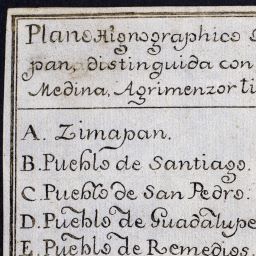 Plano Hignographico
pan, distinguida con
Medina, Agrimenzor ti
A. Zimapan.
B. Pueblo de Santiago.
C. Pueblo de San Pedro.
D. Pueblo de Guadalupe
E. Pueblo de Remedios.